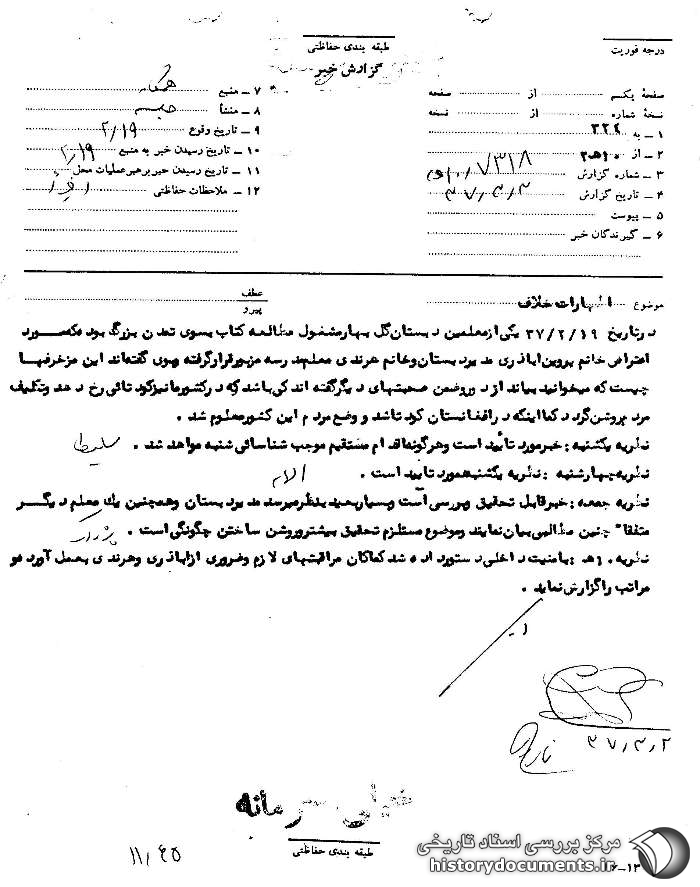 طبقه بندی حفاظتی
گزارش خبر
درجه فوریت
صفحهٔ یکم از صفحه
نسخهٔ شماره از نسخه
۱ ـ به ۳۲۴
۲ ـ از ۱۰هـ۲
۳ ـ شماره گزارش ۷۳۱۸
۴ ـ تاریخ گزارش ۳۷/۳/۲
۵ ـ پیوست
۶ ـ گیرندگان خبر
۷ ـ منبع همکار
۸ ـ منشأ
۹ ـ تاریخ وقوع ۲/۱۹
۱۰ ـ تاریخ رسیدن خبر به منبع ۲/۱۹
۱۱ ـ تاریخ رسیدن خبر برهبر عملیات محل
۱۲ ـ ملاحظات حفاظتی
موضوع اظهارات خلاف
عطف
پیرو
در تاریخ ۳۷/۲/۱۹ یکی از معلمین دبستان گل بهار مشغول مطالعه کتاب بسوی تمدن بزرگ بود که مورد
اعتراض خانم پروین اباذری مدیر دبستان و خانم هرندی معلم مدرسه مزبور قرار گرفته و بوی گفته‌اند این مزخرفها
چیست که میخوانید بیاند از دور و ضمن صحبتهای دیگر گفته‌اند کی باشد که در کشور ما نیز کودتائی رخ دهد و تکلیف
مردم روشن گردد کما اینکه در افغانستان کودتا شد و وضع مردم این کشور معلوم شد .
نظریه یکشنبه : خبر مورد تأیید است و هرگونه اقدام مستقیم موجب شناسائی شنبه خواهد شد .
نظریه چهارشنبه : نظریه یکشنبه مورد تایید است .
نظریه جمعه : خبر قابل تحقیق و بررسی است و بسیار بعید بنظر میرسد مدیر دبستان و همچنین یک معلم دیگر
متفقا" چنین مطالبی بیان نمایند و موضوع مستلزم تحقیق بیشتر و روشن ساختن چگونگی است .
نظریه ۱۰هـ : بامنیت داخلی دستور داده شد کماکان مراقبتهای لازم و ضروری از اباذری و هرندی بعمل آورده و
مراتب را گزارش نماید .
۳۷/۳/۲
خیلی محرمانه
طبقه بندی حفاظتی
۱۱/۴۵
۶-۱۳
مرکز بررسی اسناد تاریخی
historydocuments.ir